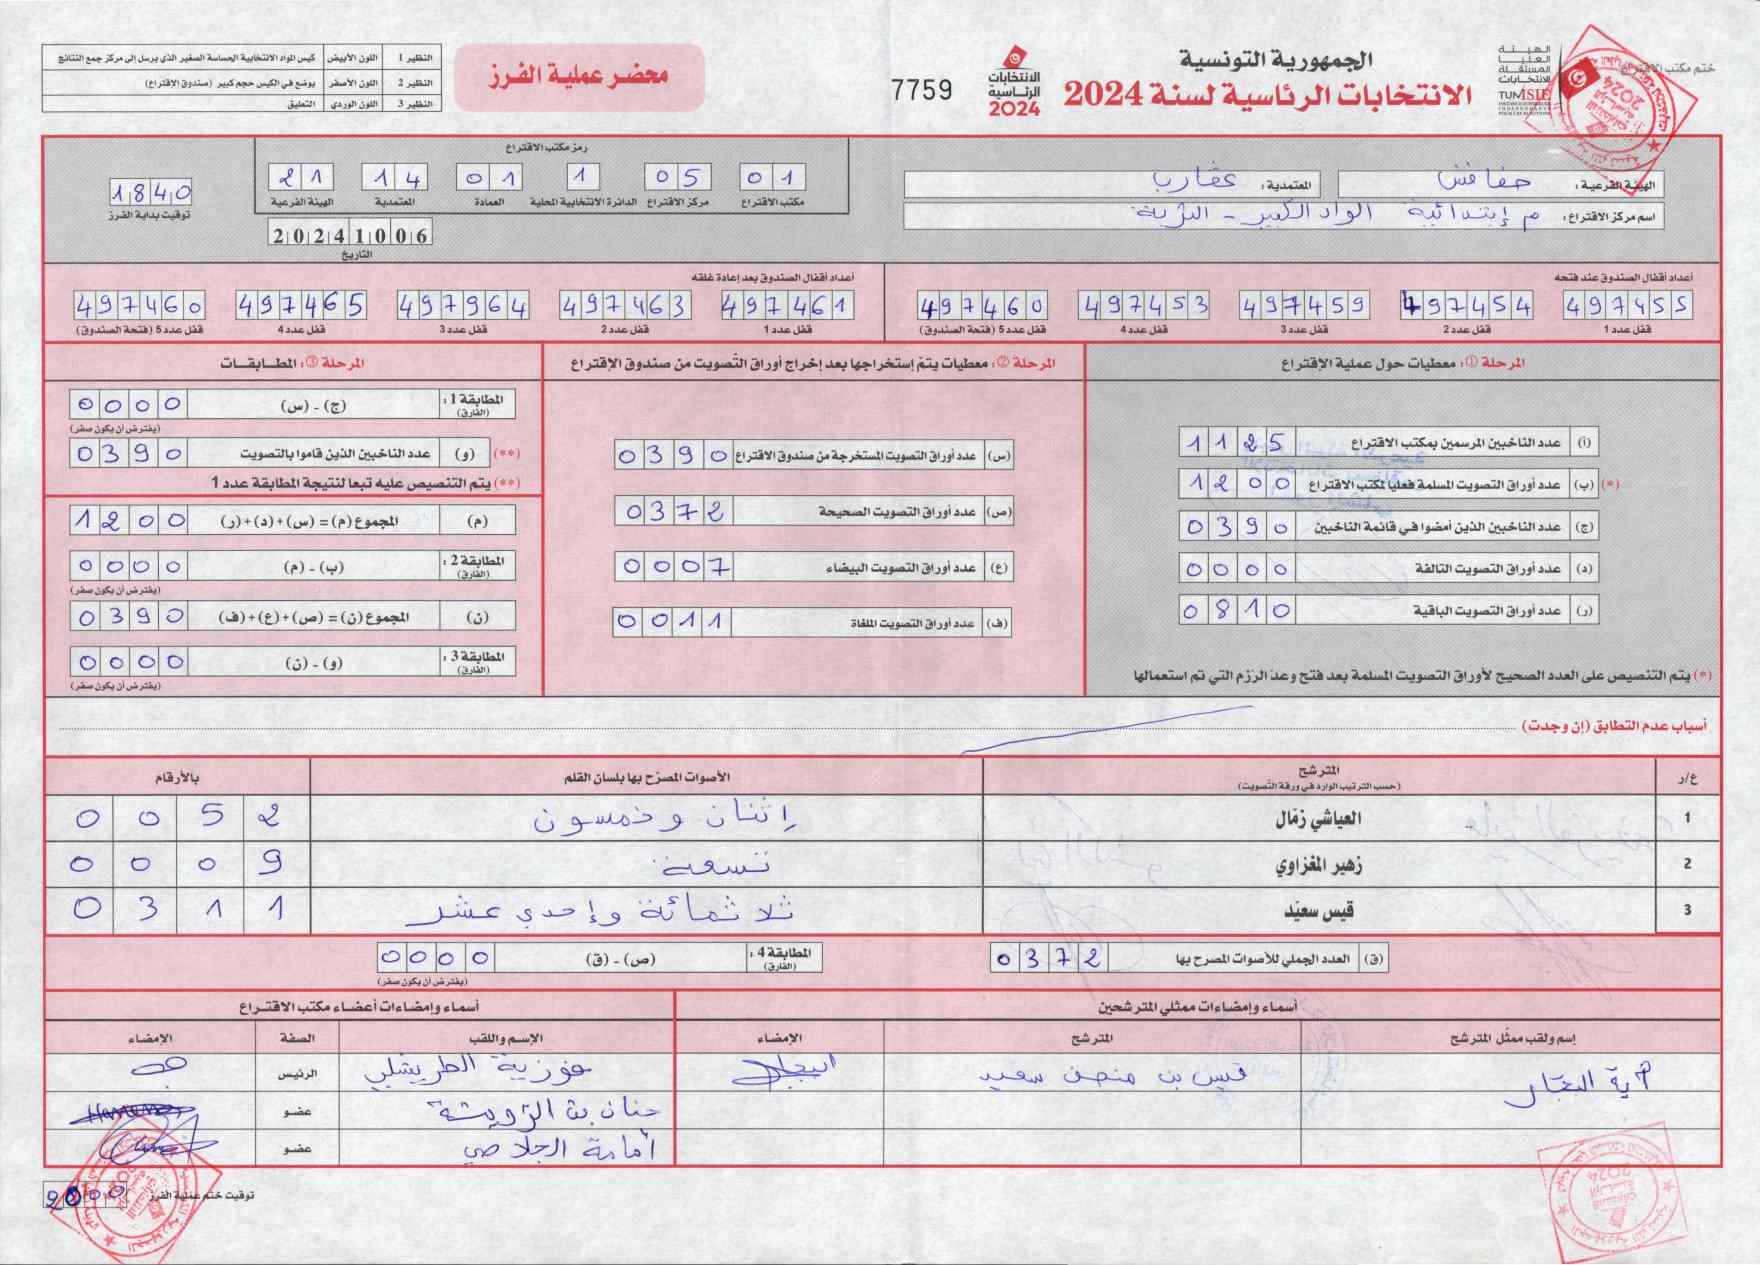 الجمهورية التونسية
الانتخابات الرئاسية لسنة 2024
الهيئة العليا المستقلة للانتخابات
TUNISIE
ختم مكتب الاقتراع
الانتخابات الرئاسية 2024
7759
محضر عملية الفرز
النظير 1 اللون الأبيض كيس المواد الانتخابية الحساسة الصغير الذي يرسل إلى مركز جمع النتائج
النظير 2 اللون الأصفر يوضع في الكيس حجم كبير (صندوق الاقتراع)
النظير 3 اللون الوردي التعليق
الهيئة الفرعية: صفاقس
المعتمدية: عقارب
اسم مركز الاقتراع: م إبتدائية الواد الكبير - التربة
رمز مكتب الاقتراع
01 05 1 01 14 21
مكتب الاقتراع مركز الاقتراع الدائرة الانتخابية المحلية العمادة المعتمدية الهيئة الفرعية
20241006
التاريخ
1840
توقيت بداية الفرز
أعداد أقفال الصندوق عند فتحه
497455 497454 497459 497453 497460
قفل عدد 1 قفل عدد 2 قفل عدد 3 قفل عدد 4 قفل عدد 5 (فتحة الصندوق)
أعداد أقفال الصندوق بعد إعادة غلقه
497461 497463 497964 497465 497460
قفل عدد 1 قفل عدد 2 قفل عدد 3 قفل عدد 4 قفل عدد 5 (فتحة الصندوق)
المرحلة ①: معطيات حول عملية الاقتراع
(أ) عدد الناخبين المرسمين بمكتب الاقتراع 1125
(*) (ب) عدد أوراق التصويت المسلمة فعليا لمكتب الاقتراع 1200
(ج) عدد الناخبين الذين أمضوا في قائمة الناخبين 0390
(د) عدد أوراق التصويت التالفة 0000
(ر) عدد أوراق التصويت الباقية 0810
(*) يتم التنصيص على العدد الصحيح لأوراق التصويت المسلمة بعد فتح وعدّ الرّزم التي تم استعمالها
المرحلة ②: معطيات يتم إستخراجها بعد إخراج أوراق التّصويت من صندوق الإقتراع
(س) عدد أوراق التصويت المستخرجة من صندوق الاقتراع 0390
(ص) عدد أوراق التصويت الصحيحة 0372
(ع) عدد أوراق التصويت البيضاء 0007
(ف) عدد أوراق التصويت الملغاة 0011
المرحلة ③: المطـابـقـات
المطابقة 1: (الفارق) (ج) - (س) 0000
(يفترض أن يكون صفر)
(**) (و) عدد الناخبين الذين قاموا بالتصويت 0390
(**) يتم التنصيص عليه تبعا لنتيجة المطابقة عدد 1
(م) المجموع (م) = (س)+(د)+(ر) 1200
المطابقة 2: (الفارق) (ب) - (م) 0000
(يفترض أن يكون صفر)
(ن) المجموع (ن) = (ص)+(ع)+(ف) 0390
المطابقة 3: (الفارق) (و) - (ن) 0000
(يفترض أن يكون صفر)
أسباب عدم التطابق (إن وجدت)
ع/ر المترشح (حسب الترتيب الوارد في ورقة التّصويت) الأصوات المصرّح بها بلسان القلم بالأرقام
1 العياشي زمّال إثنان وخمسون 0052
2 زهير المغزاوي تسعة 0009
3 قيس سعيّد ثلاثمائة وإحدى عشر 0311
(ق) العدد الجملي للأصوات المصرح بها 0372
المطابقة 4: (الفارق) (ص) - (ق) 0000
(يفترض أن يكون صفر)
أسماء وإمضاءات ممثلي المترشحين
إسم ولقب ممثّل المترشح المترشح الإمضاء
آية النجار قيس بن منصف سعيد
أسماء وإمضاءات أعضاء مكتب الاقتـراع
الإسم واللقب الصفة الإمضاء
فوزية الطريشلي الرئيس
حنان بن الزويشة عضو
أمامة الجلاصي عضو
توقيت ختم عملية الفرز 2000